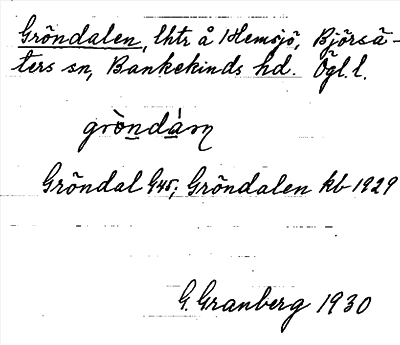 Gröndalen, lhtr å 1 Hemsjö, Björsä-
ters sn, Bankekinds hd. Ögl. l.
Gröndal Gak; Gröndalen kb 1929
G. Granberg 1930